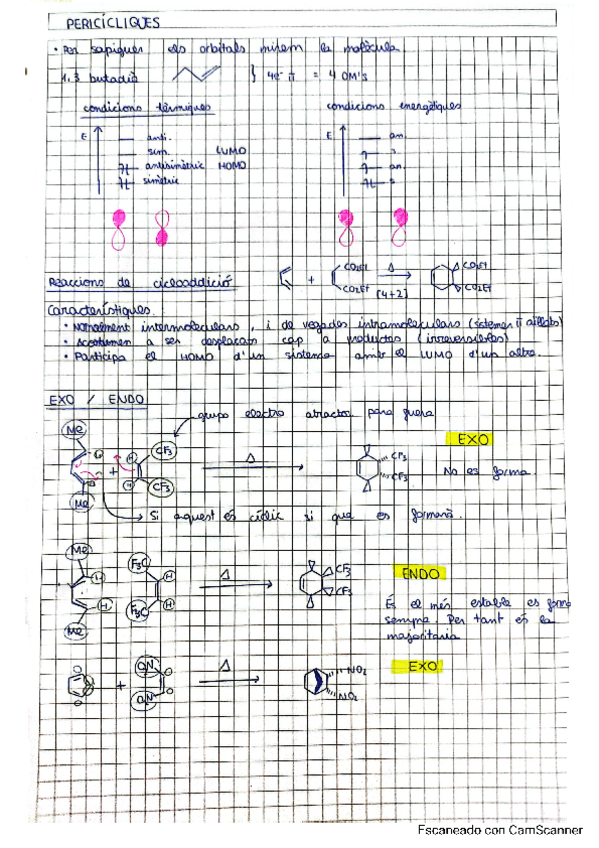 PERICÍCLIQUES
• Per sapiguer els orbitals mirem la molècula.
1,3 butadiè } 4e⁻ π = 4 OM's
condicions tèrmiques
condicions energètiques
E
anti.
sim. LUMO
antisimètric HOMO
simètric
E
an.
s.
an.
s
Reaccions de cicloaddició
+ CO2Et CO2Et Δ [4+2] CO2Et CO2Et
Característiques
• Normalment intermoleculars, i de vegades intramoleculars (sistemes π aïllats)
• Acostumen a ser desplaçats cap a productes (irreversibles)
• Participa el HOMO d'un sistema amb el LUMO d'un altre.
EXO / ENDO
grupo electro atractor para guera
EXO
Me + H H CF3 CF3 Δ CF3 CF3
No es forma.
Me
Si aquest és cíclic si que es formarà.
Me H H Me F3C F3C H H Δ CF3 CF3
ENDO
És el més estable es forma
sempre. Per tant és la
majoritaria
EXO
+ O2N O2N Δ NO2 NO2
Escaneado con CamScanner